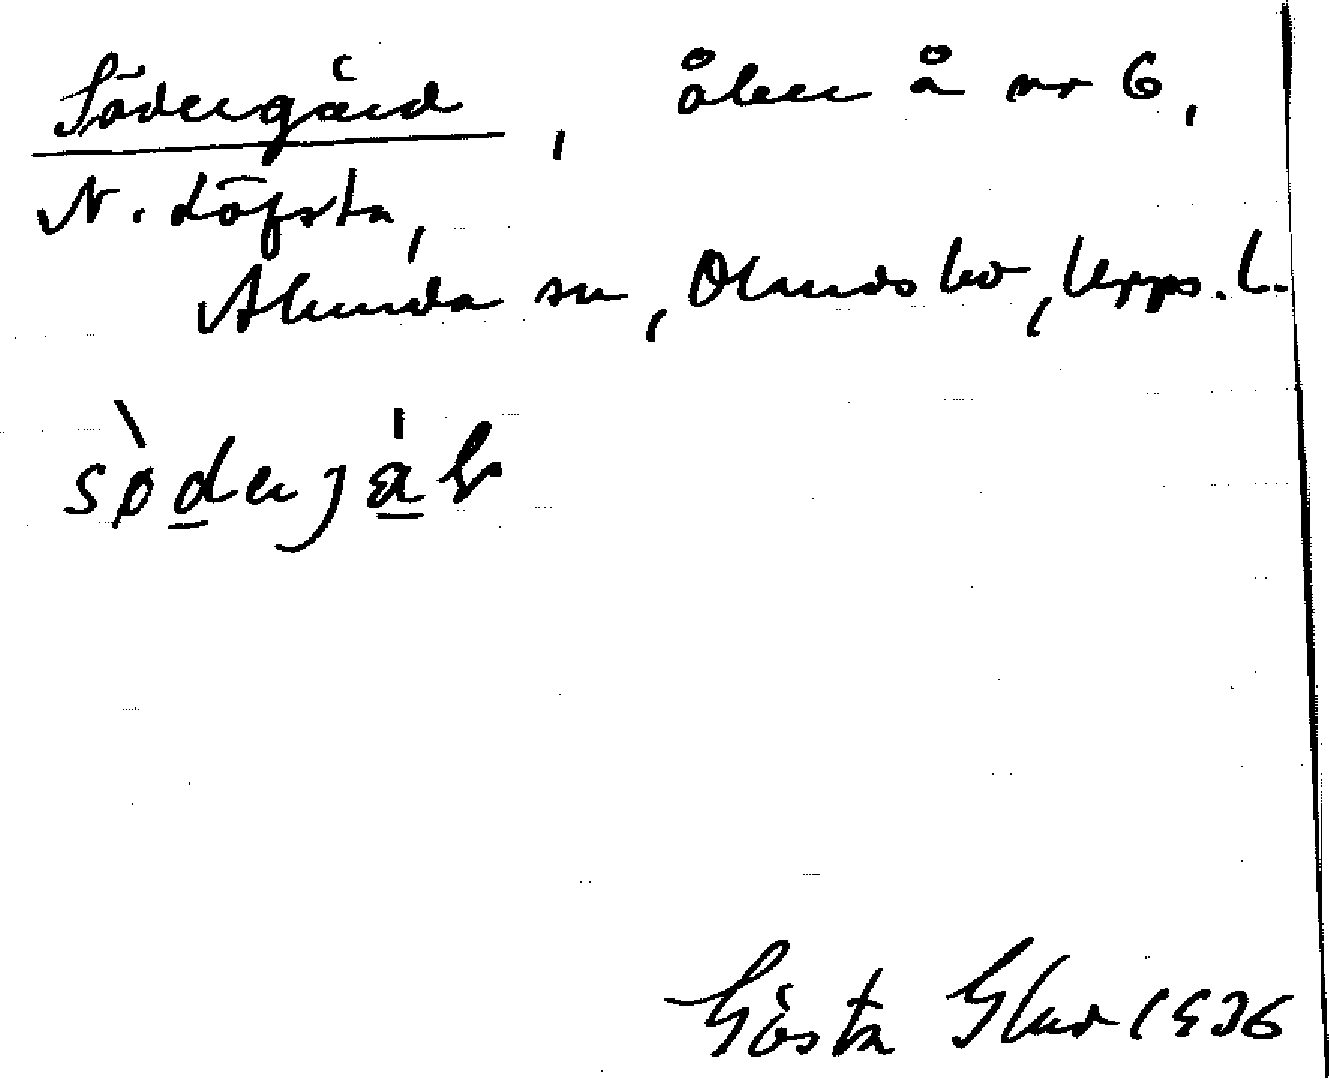 Södergård, åker å nr 6,
N. Löfsta,
Alunda sn, Olands hd, Upps. l.
sø̀derjá
Gösta 1936